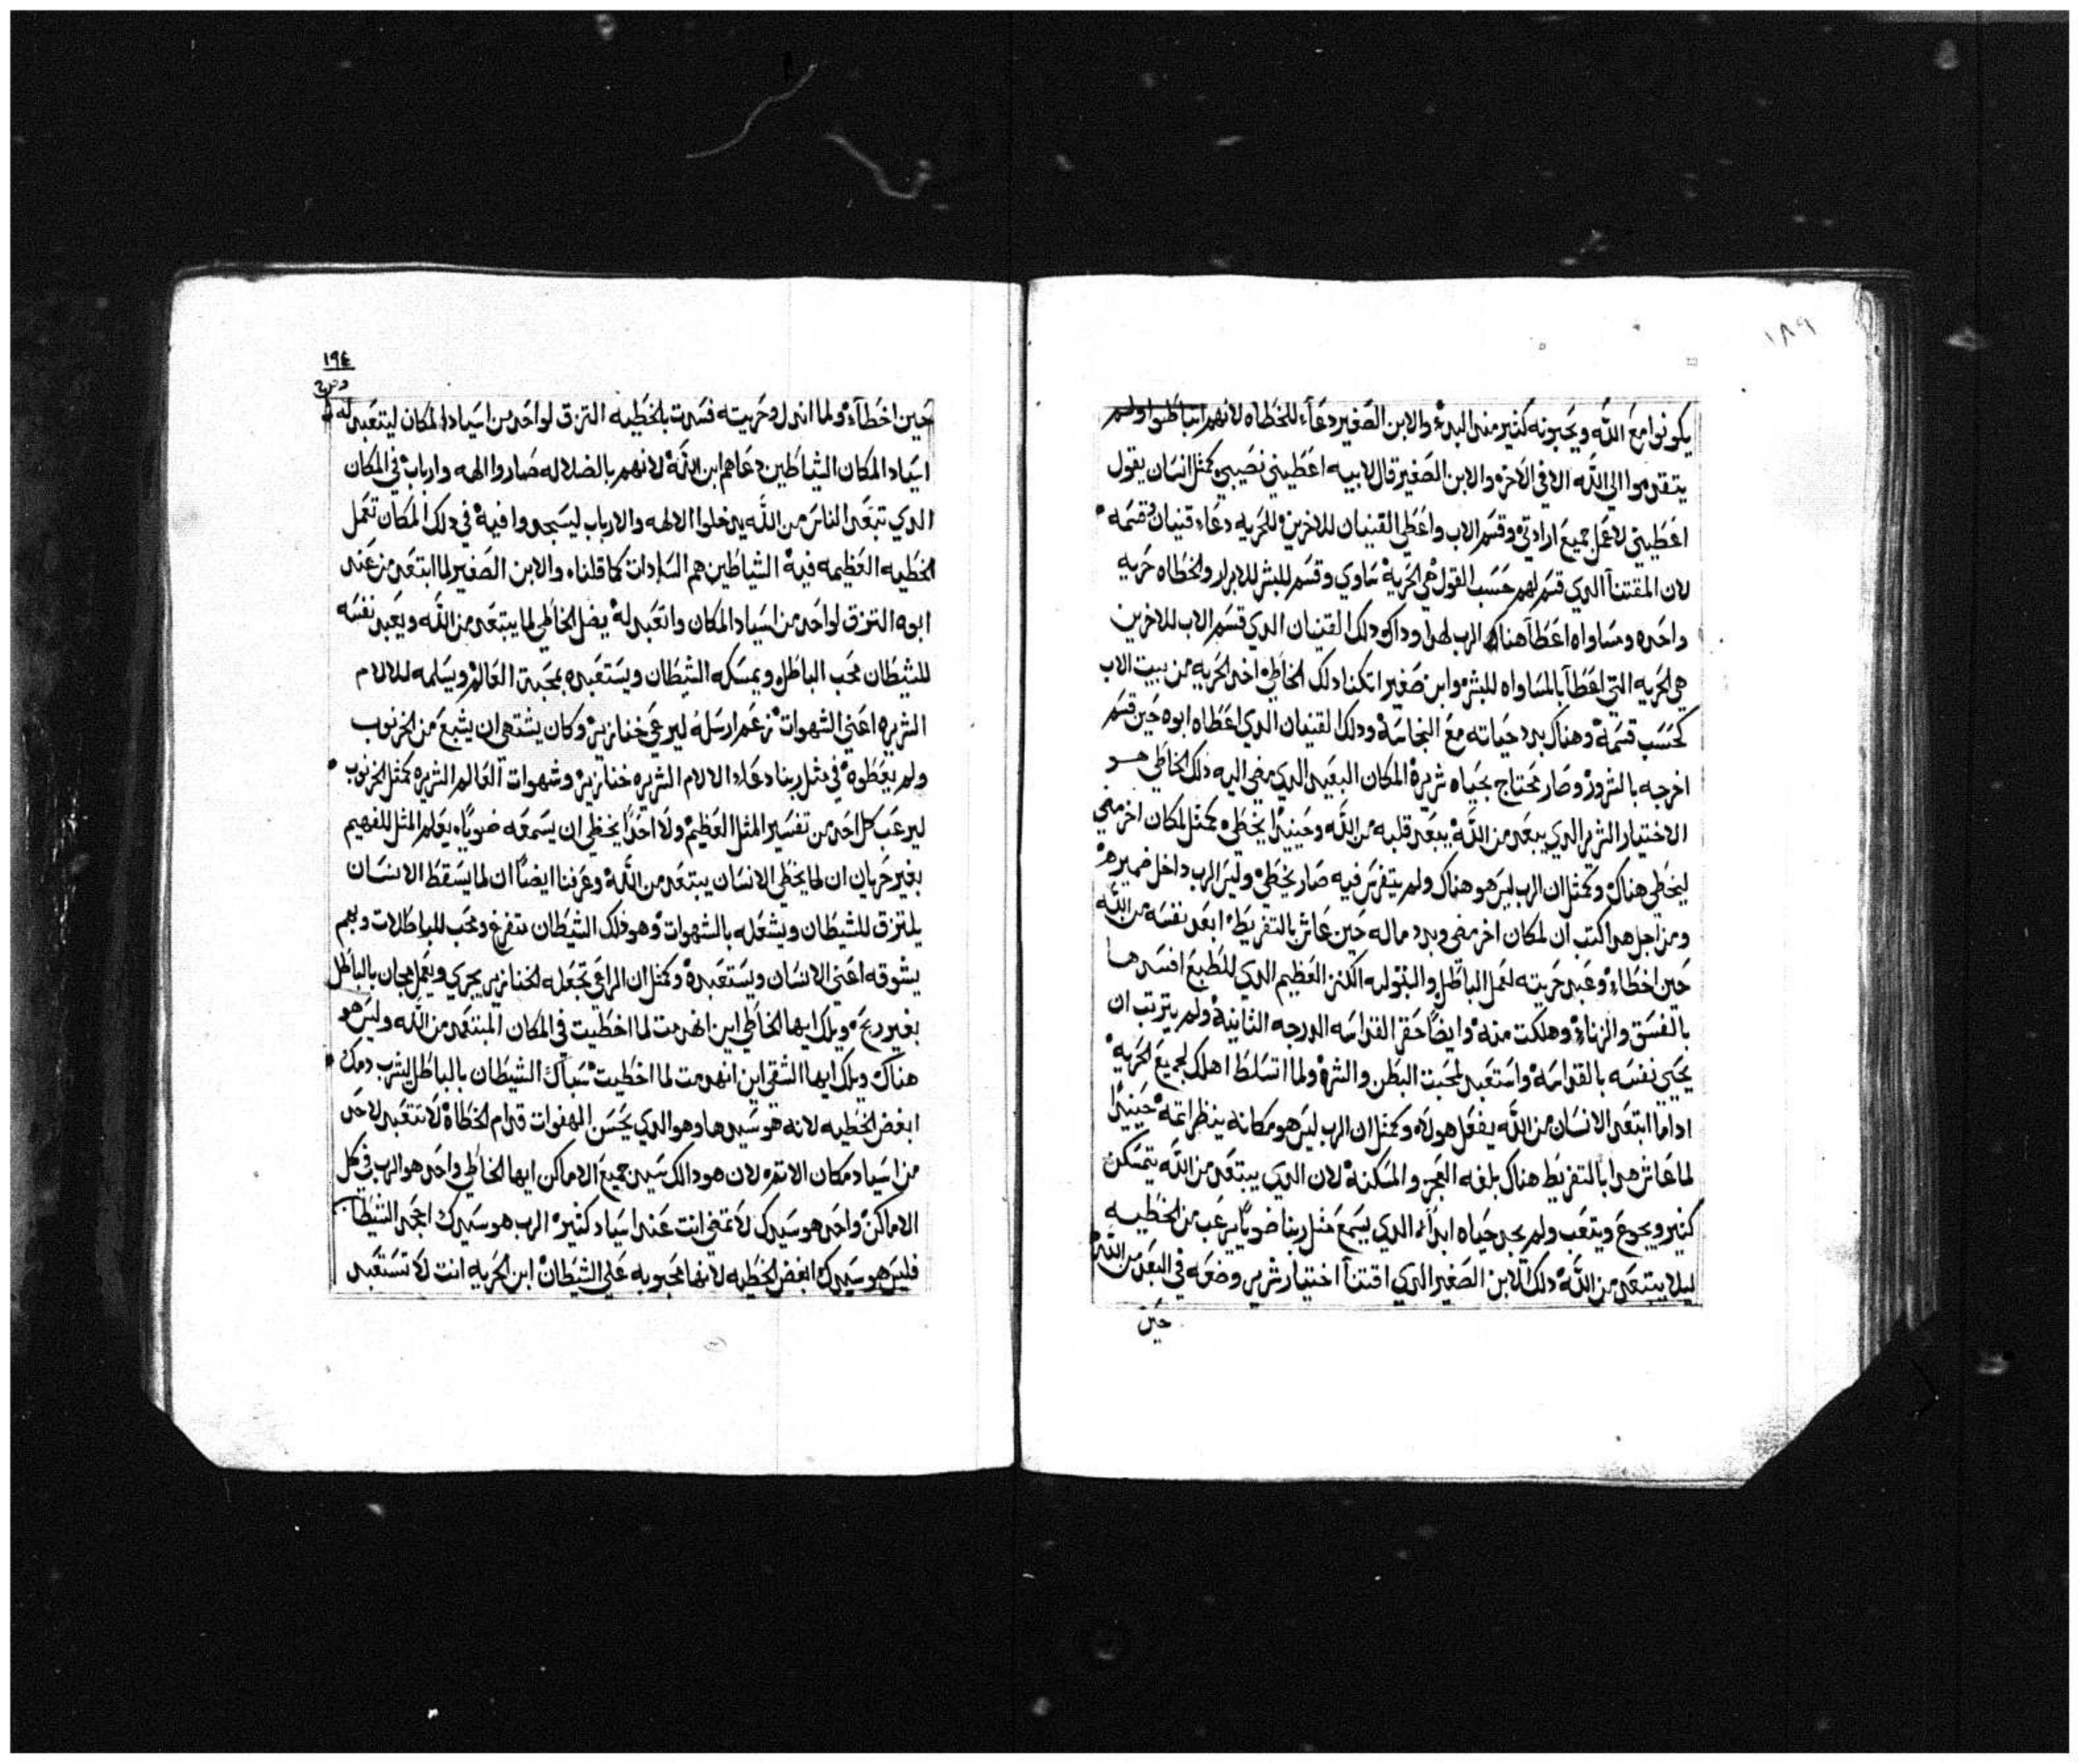 ١٨٩
يكونوا مع الله ويحبونه كثير منذ البدء والابن الصغير دعاء للخطاه لانهم ابتاطوا ولم
يتقدموا الي الله الا في الاخر والابن الصغير قال لابيه اعطيني نصيبي كمثل انسان يقول
اعطيني لاعمل جميع ارادتي وقسم الاب واعطي القنيان للاخرين الحريه دعاء قنيان وقسمه
لان المقتنا الدي قسم لهم حسب القول هي الحرية بتساوي وقسم للبشر للابرار والخطاه حريه
واحده ومساواه اعطا هناك الرب لهدا وداك ودلك القنيان الدي قسم الاب للاخرين
هي الحريه التي اعطا بالمساواه للبشر وابن صغير اتكنا دلك الخاطي اخد الحريه من بيت الاب
كحسب قسمة وهناك بدد حياته مع النجاسة ودلك القنيان الدي اعطاه ابوه حين قسم
اخرجه بالشرور وصار محتاج بحياه شريرة المكان البعيد الدي مضي اليه دلك الخاطي هو
الاختيار الشرير الدي يبعد من الله يبعد قلبه من الله وحينيدا يخطي كمثل لمكان اخر مضي
ليخطي هناك وكمثل ان الرب ليس هو هناك ولم يتفرس فيه صار يخطي وليس الرب داخل ضميره
ومن اجل هدا كتب ان لمكان اخر مضي وبدد ماله حين عاش بالتفريط ابعد نفسه من الله
حين اخطاء وعبد حريته لعمل الباطل والبتوليه الكنز العظيم الدي للطبع افسدها
بالفسق والزناء وهلكت منه وايضا حقر القداسه الدرجه الثانية ولم يترتب ان
يحيي نفسه بالقداسة واستعبد لمحبت البطن والشره ولما اتسلط اهلك لجميع الحرية
اداما ابتعد الانسان من الله يفعل هولاه وكمثل ان الرب ليس هو مكانه ينظر اتمه حينيدا
لما عاش هدا بالتفريط هناك بلغه العجز والمسكنة لان الدي يبتعد من الله يتمسكن
كثير ويجوع ويتعب ولم يجد حياه ابدا الدي يسمع مثل ربنا ضويا يرعب من الخطيه
ليلا يبتعد من الله دلك الابن الصغير الدي اقتنا اختيار شرير وضعه في البعد من الله
حين
١٩٤
حين اخطاء ولما اندل وحريته فسدت بالخطيه التزق لواحد من اسياد المكان ليتعبد له
اسياد المكان الشياطين دعاهم ابن الله لانهم بالضلاله صاروا الهه وارباب في المكان
الدي تبعد الناس من الله يدخلوا الالهه والارباب ليسجدوا فيه في دلك المكان تعمل
الخطيه العظيمه فيه الشياطين هم السادات كما قلنا والابن الصغير لما ابتعد من عند
ابوه التزق لواحد من اسياد المكان واتعبد له يضل الخاطي لما يبتعد من الله ويعبد نفسه
للشيطان محب الباطل ويمسكه الشيطان ويستعبده بمحبة العالم ويسلمه للالام
الشريره اعني الشهوات زعم ارسله ليرعي خنازير وكان يشتهي ان يشبع من الخرنوب
ولم يعطوه في مثل ربنا دعاء الالام الشريره خنازير وشهوات العالم الشريره كمثل الخرنوب
ليرعب كل احد من تفسير المثل العظيم ولا احدا يخطي ان يسمعه ضويا يعلم المثل للفهيم
بغير جربان ان لما يخطي الانسان يبتعد من الله وعرفنا ايضا ان لما يسقط الانسان
يلتزق للشيطان ويشغله بالشهوات وهو دلك الشيطان متفرغ ومحب للباطلات وبهم
يشوقه اعني الانسان ويستعبده وكمثل ان الراعي تجعله الخنازير يجري ويعمل مجان بالباطل
بغير ربح ويلك ايها الخاطي اين انهدمت لما اخطيت في المكان المبتعد من الله وليس هو
هناك ويلك ايها الشقي اين انهدمت لما اخطيت سباك الشيطان بالباطل ليشرب دمك
ابغض الخطيه لانه هو سيدها وهو الدي يحسن الهفوات قدام الخطاة لا تتعبد لاحد
من اسياد مكان الاتمه لان هو دالك سيد جميع الاماكن ايها الخاطي واحد هو الرب في كل
الاماكن واحد هو سيدك لا تمضي انت عند اسياد كثير الرب هو سيدك اجحد الشيطان
فليس هو سيدك ابغض الخطيه لانها محبوبه علي الشيطان ابن الحريه انت لا تستعبد